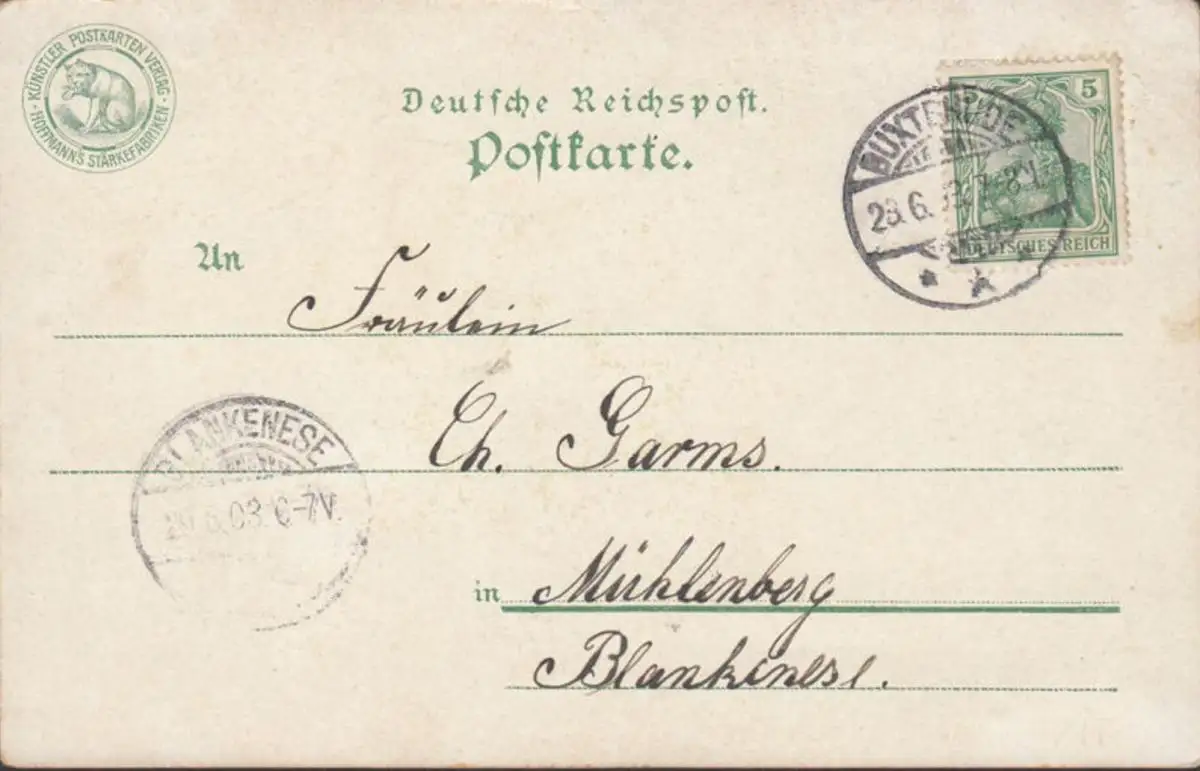 KÜNSTLER POSTKARTEN VERLAG · HOFFMANN'S STÄRKEFABRIKEN ·
Deutsche Reichspost.
Postkarte.
5 5
DEUTSCHES REICH
BUXTEHUDE
6.
An
Fräulein
BLANKENESE
6.03. 6-7V.
Ch. Garms.
in Mühlenberg
Blankenese.